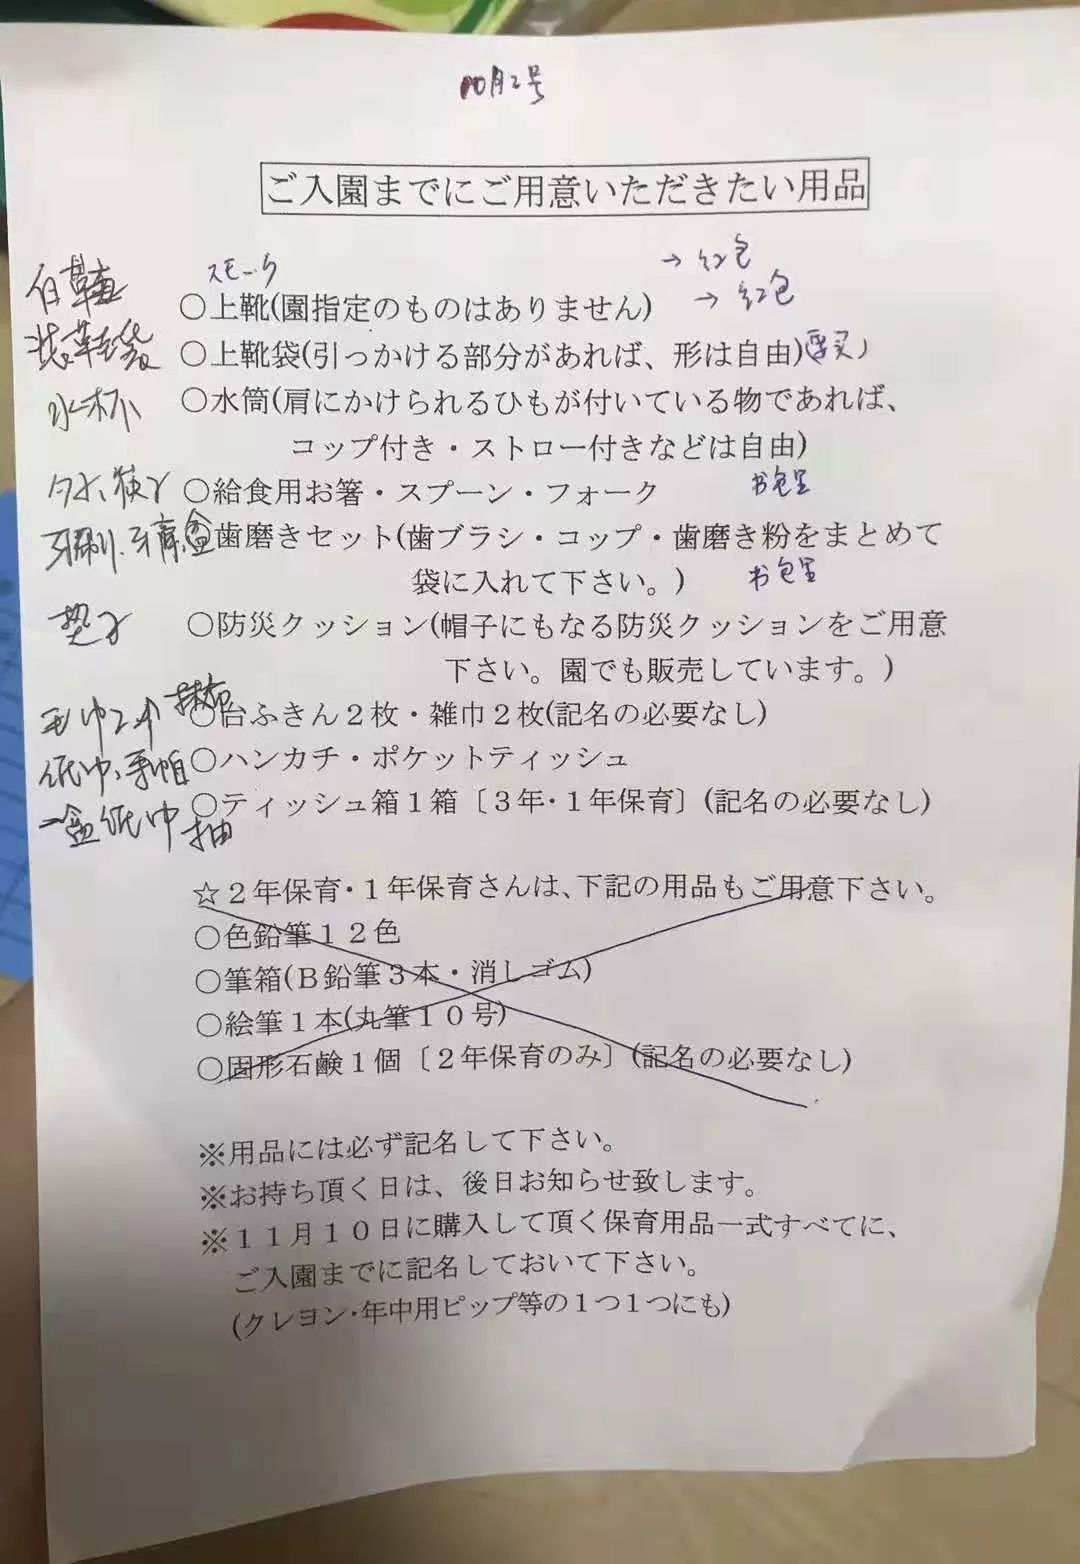 10月2号
ご入園までにご用意いただきたい用品
スモック → 红包
白鞋 ○上靴(園指定のものはありません) → 红包
装鞋袋 ○上靴袋(引っかける部分があれば、形は自由)(要买)
水杯 ○水筒(肩にかけられるひもが付いている物であれば、
コップ付き・ストロー付きなどは自由)
筷子 ○給食用お箸・スプーン・フォーク 书包里
牙刷、牙膏、盒 歯磨きセット(歯ブラシ・コップ・歯磨き粉をまとめて
袋に入れて下さい。) 书包里
垫子 ○防災クッション(帽子にもなる防災クッションをご用意
下さい。園でも販売しています。)
毛巾2个 抹布 ○台ふきん2枚・雑巾2枚(記名の必要なし)
纸巾、手帕 ○ハンカチ・ポケットティッシュ
一盒纸巾 抽 ○ティッシュ箱1箱〔3年・1年保育〕(記名の必要なし)
☆2年保育・1年保育さんは、下記の用品もご用意下さい。
○色鉛筆12色
○筆箱(B鉛筆3本・消しゴム)
○絵筆1本(丸筆10号)
○固形石鹸1個〔2年保育のみ〕(記名の必要なし)
※用品には必ず記名して下さい。
※お持ち頂く日は、後日お知らせ致します。
※11月10日に購入して頂く保育用品一式すべてに、
ご入園までに記名しておいて下さい。
(クレヨン・年中用ピップ等の1つ1つにも)